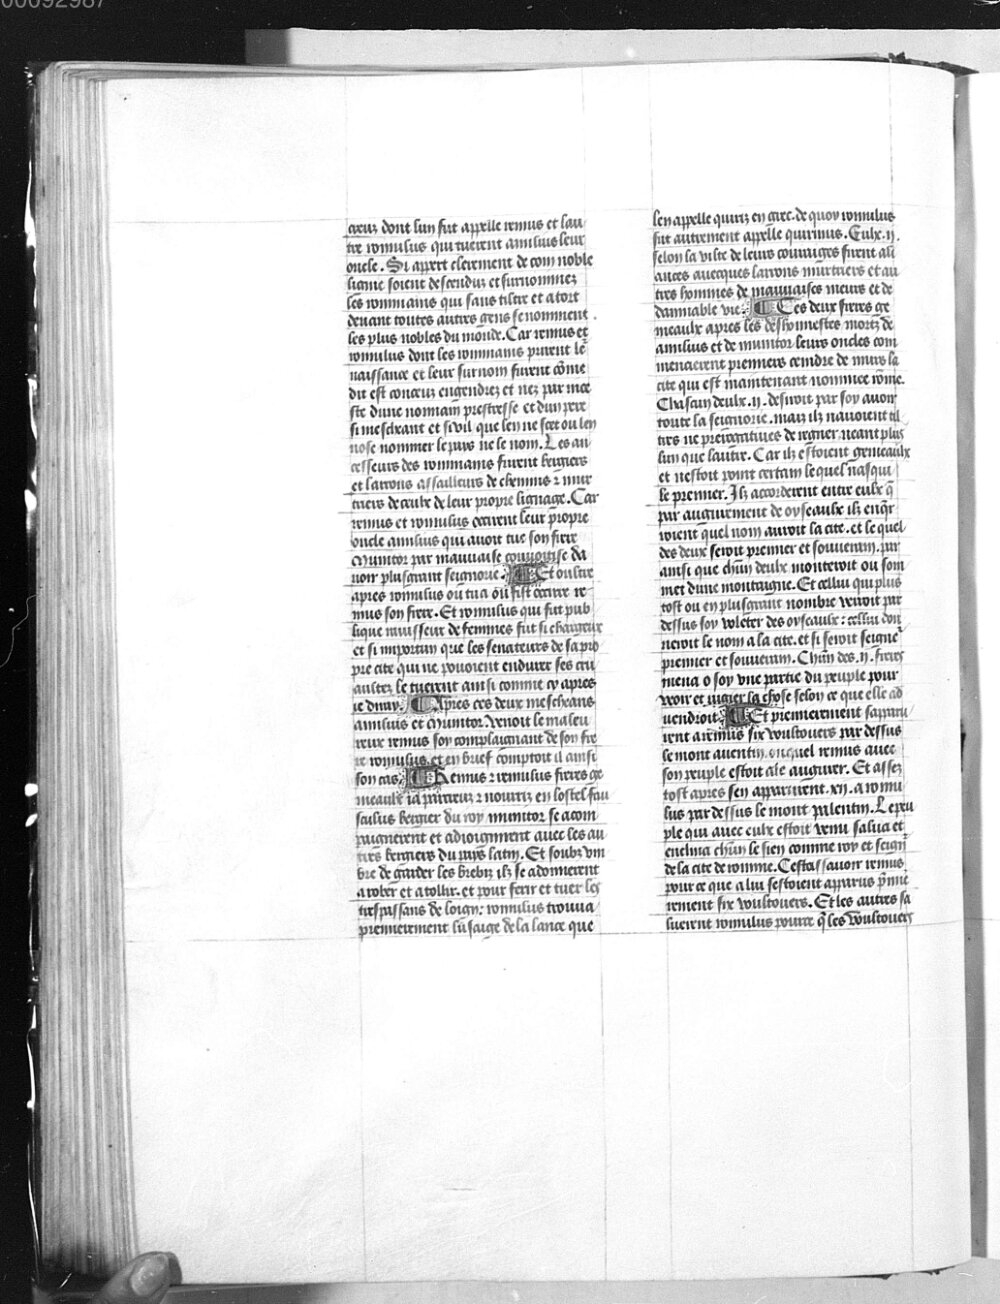 00092987
ceuz dont lun fut appelle remus et lau
tre romulus qui tuerent amulius leur
oncle. Si appert clerement de com noble
lignie soient descenduz et surnommez
les rommains qui sans tiltre et a tort
deuant toutes autres gens se nomment
les plus nobles du monde. Car remus et
romulus dont les rommains prirent le
naissance et leur surnom furent cõme
dit est conceuz engendrez et nez par ince
ste dune nonnain prestresse et dun pere
si meschant et si vil que len ne scet ou len
nose nommer le pays ne le nom. Les an
cesseurs des rommains furent bergiers
et larrons assailleurs de chemins ⁊ mur
triers de ceulx de leur propre lignage. Car
remus et romulus occirent leur propre
oncle amulius qui auoit tue son frere
munitor par mauuaise conuoitise da
uoir plus grant seignorie. Et oultre
apres romulus ou tua ou fist occirre re
mus son frere. Et romulus qui fut pub
lique rauisseur de femmes fut si chargeux
et si importun que les senateurs de sa pro
pre cite qui ne pouoient endurer ses cru
aultez le tuerent ainsi comme cy apres
ie diray. Apres ces deux meschans
amulius et munitor venoit le maleu
reux remus soy complaignant de son fre
re romulus et en brief comptoit il ainsi
son cas. Remus ⁊ romulus freres ge
meaulx ia parcreuz ⁊ nourriz en lostel fau
stulus bergier du roy munitor se acom
paignerent et adioignirent auec les au
tres bergiers du pays latin. Et soubz vm
bre de garder les brebiz ilz se adonnerent
a rober et a tollir. et pour ferir et tuer les
trespassans de loing: romulus trouua
premierement lusaige de la lance que
len appelle quiriz en grec. de quoy romulus
fut autrement appelle quirinus. Eulx .ii.
selon la vilte de leurs couraiges firent ali
ances auecques larrons murtriers et au
tres hommes de mauuaises meurs et de
damnable vie. Ces deux freres ge
meaulx apres les deshonnestes mortz de
amulius et de munitor leurs oncles com
mencierent premiers ceindre de murs la
cite qui est maintenant nommee rõme.
Chascun deulx .ii. desiroit par soy auoir
toute la seignorie. mais ilz nauoient til
tres ne prerogatiues de regner neant plus
lun que lautre. Car ilz estoient gemeaulx
et nestoit point certain lequel nasqui
le premier. Ilz accorderent entre eulx q̃
par augurement de oyseaulx ilz enq̃r
roient quel nom auroit la cite. et le quel
des deux seroit premier et souuerain. par
ainsi que chũn deulx monteroit ou som
met dune montaigne. Et cellui qui plus
tost ou en plus grant nombre verroit par
dessus soy voleter des oyseaulx: cellui don
neroit le nom a la cite. et si seroit seigne
premier et souuerain. Chũn des .ii. freres
mena o soy vne partie du peuple pour
veoir et iugier la chose selon ce que elle ad
uendroit. Et premierement sapparu
rent a remus six voultoueres par dessus
le mont auentin. ouquel remus auec
son peuple estoit ale augurer. Et assez
tost apres sen apparurent .xii. a romu
lus par dessus le mont palentin. Le peu
ple qui auec eulx estoit venu salua et
enclina chũn le sien comme roy et seign̄
de la cite de romme. Cestassauoir remus
pour ce que a lui sestoient apparus p̃mie
rement six voultoueres. Et les autres sa
luerent romulus pource q̃ les voultoueres